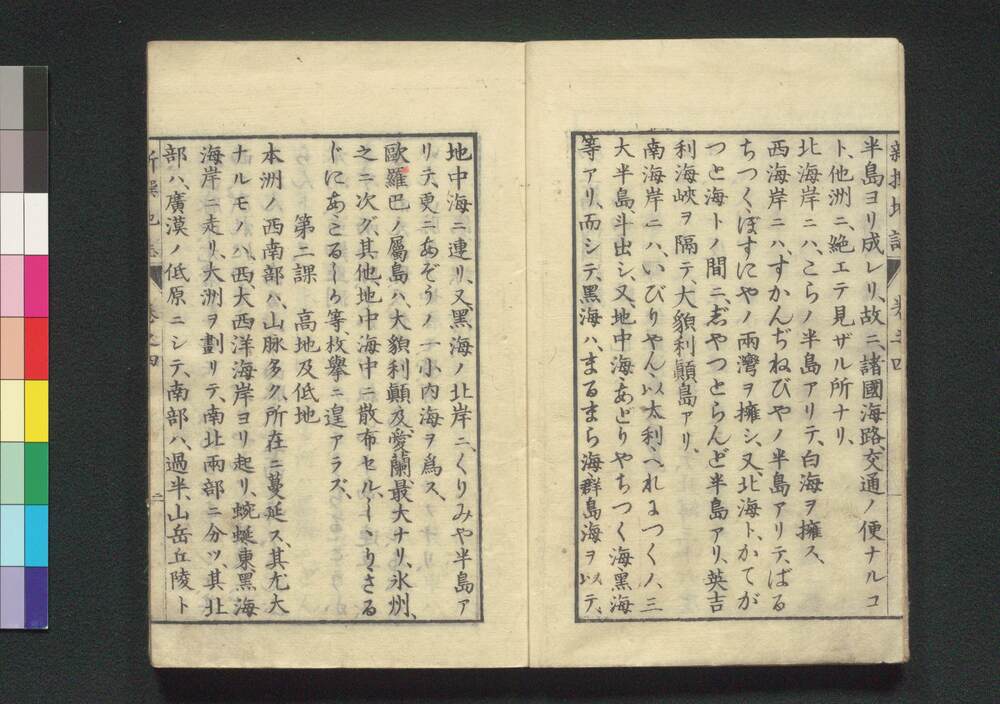 新撰地誌 卷之四
半島ヨリ成レリ、故ニ、諸國海路、交通ノ便ナルコ
ト、他洲ニ、絶エテ見ザル所ナリ、
北海岸ニハ、こらノ半島アリテ、白海ヲ擁ス、
西海岸ニハ、すかんぢねびやノ半島アリテ、ばる
ちつく、ぼすにやノ兩灣ヲ擁シ、又、北海ト、かてが
つと海トノ間ニ、志゙やつとらんど半島アリ、英吉
利海峽ヲ隔テ、大貌利顛島アリ、
南海岸ニハ、いびりやん、以太利、へれにつくノ、三
大半島、斗出シ、又、地中海、あどりやちつく海、黑海
等アリ、而シテ、黑海ハ、まるまら海、群島海ヲ以テ、
地中海ニ連リ、又黑海ノ北岸ニ、くりみや半島ア
リテ、更ニあぞうノ一小内海ヲ爲ス、
歐羅巴ノ屬島ハ、大貌利顛及愛蘭最大ナリ、氷州、
之ニ次グ、其他、地中海中ニ散布セル、しゝりさる
ぢにあこるしか等、枚擧ニ遑アラズ、
第二課 高地及低地
本洲ノ西南部ハ、山脉多ク、所在ニ蔓延ス、其尤大
ナルモノハ、西、大西洋海岸ヨリ起リ、蜿蜒、東、黑海
海岸ニ走リ、大洲ヲ劃リテ、南北兩部ニ分ツ、其北
部ハ、廣漠ノ低原ニシテ、南部ハ、過半、山岳丘陵ト
新撰地誌 卷之四 二